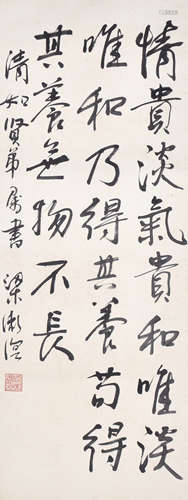 情貴淡氣貴和唯淡
唯和乃得其養苟得
其養無物不長
清如賢弟屬書 梁漱溟